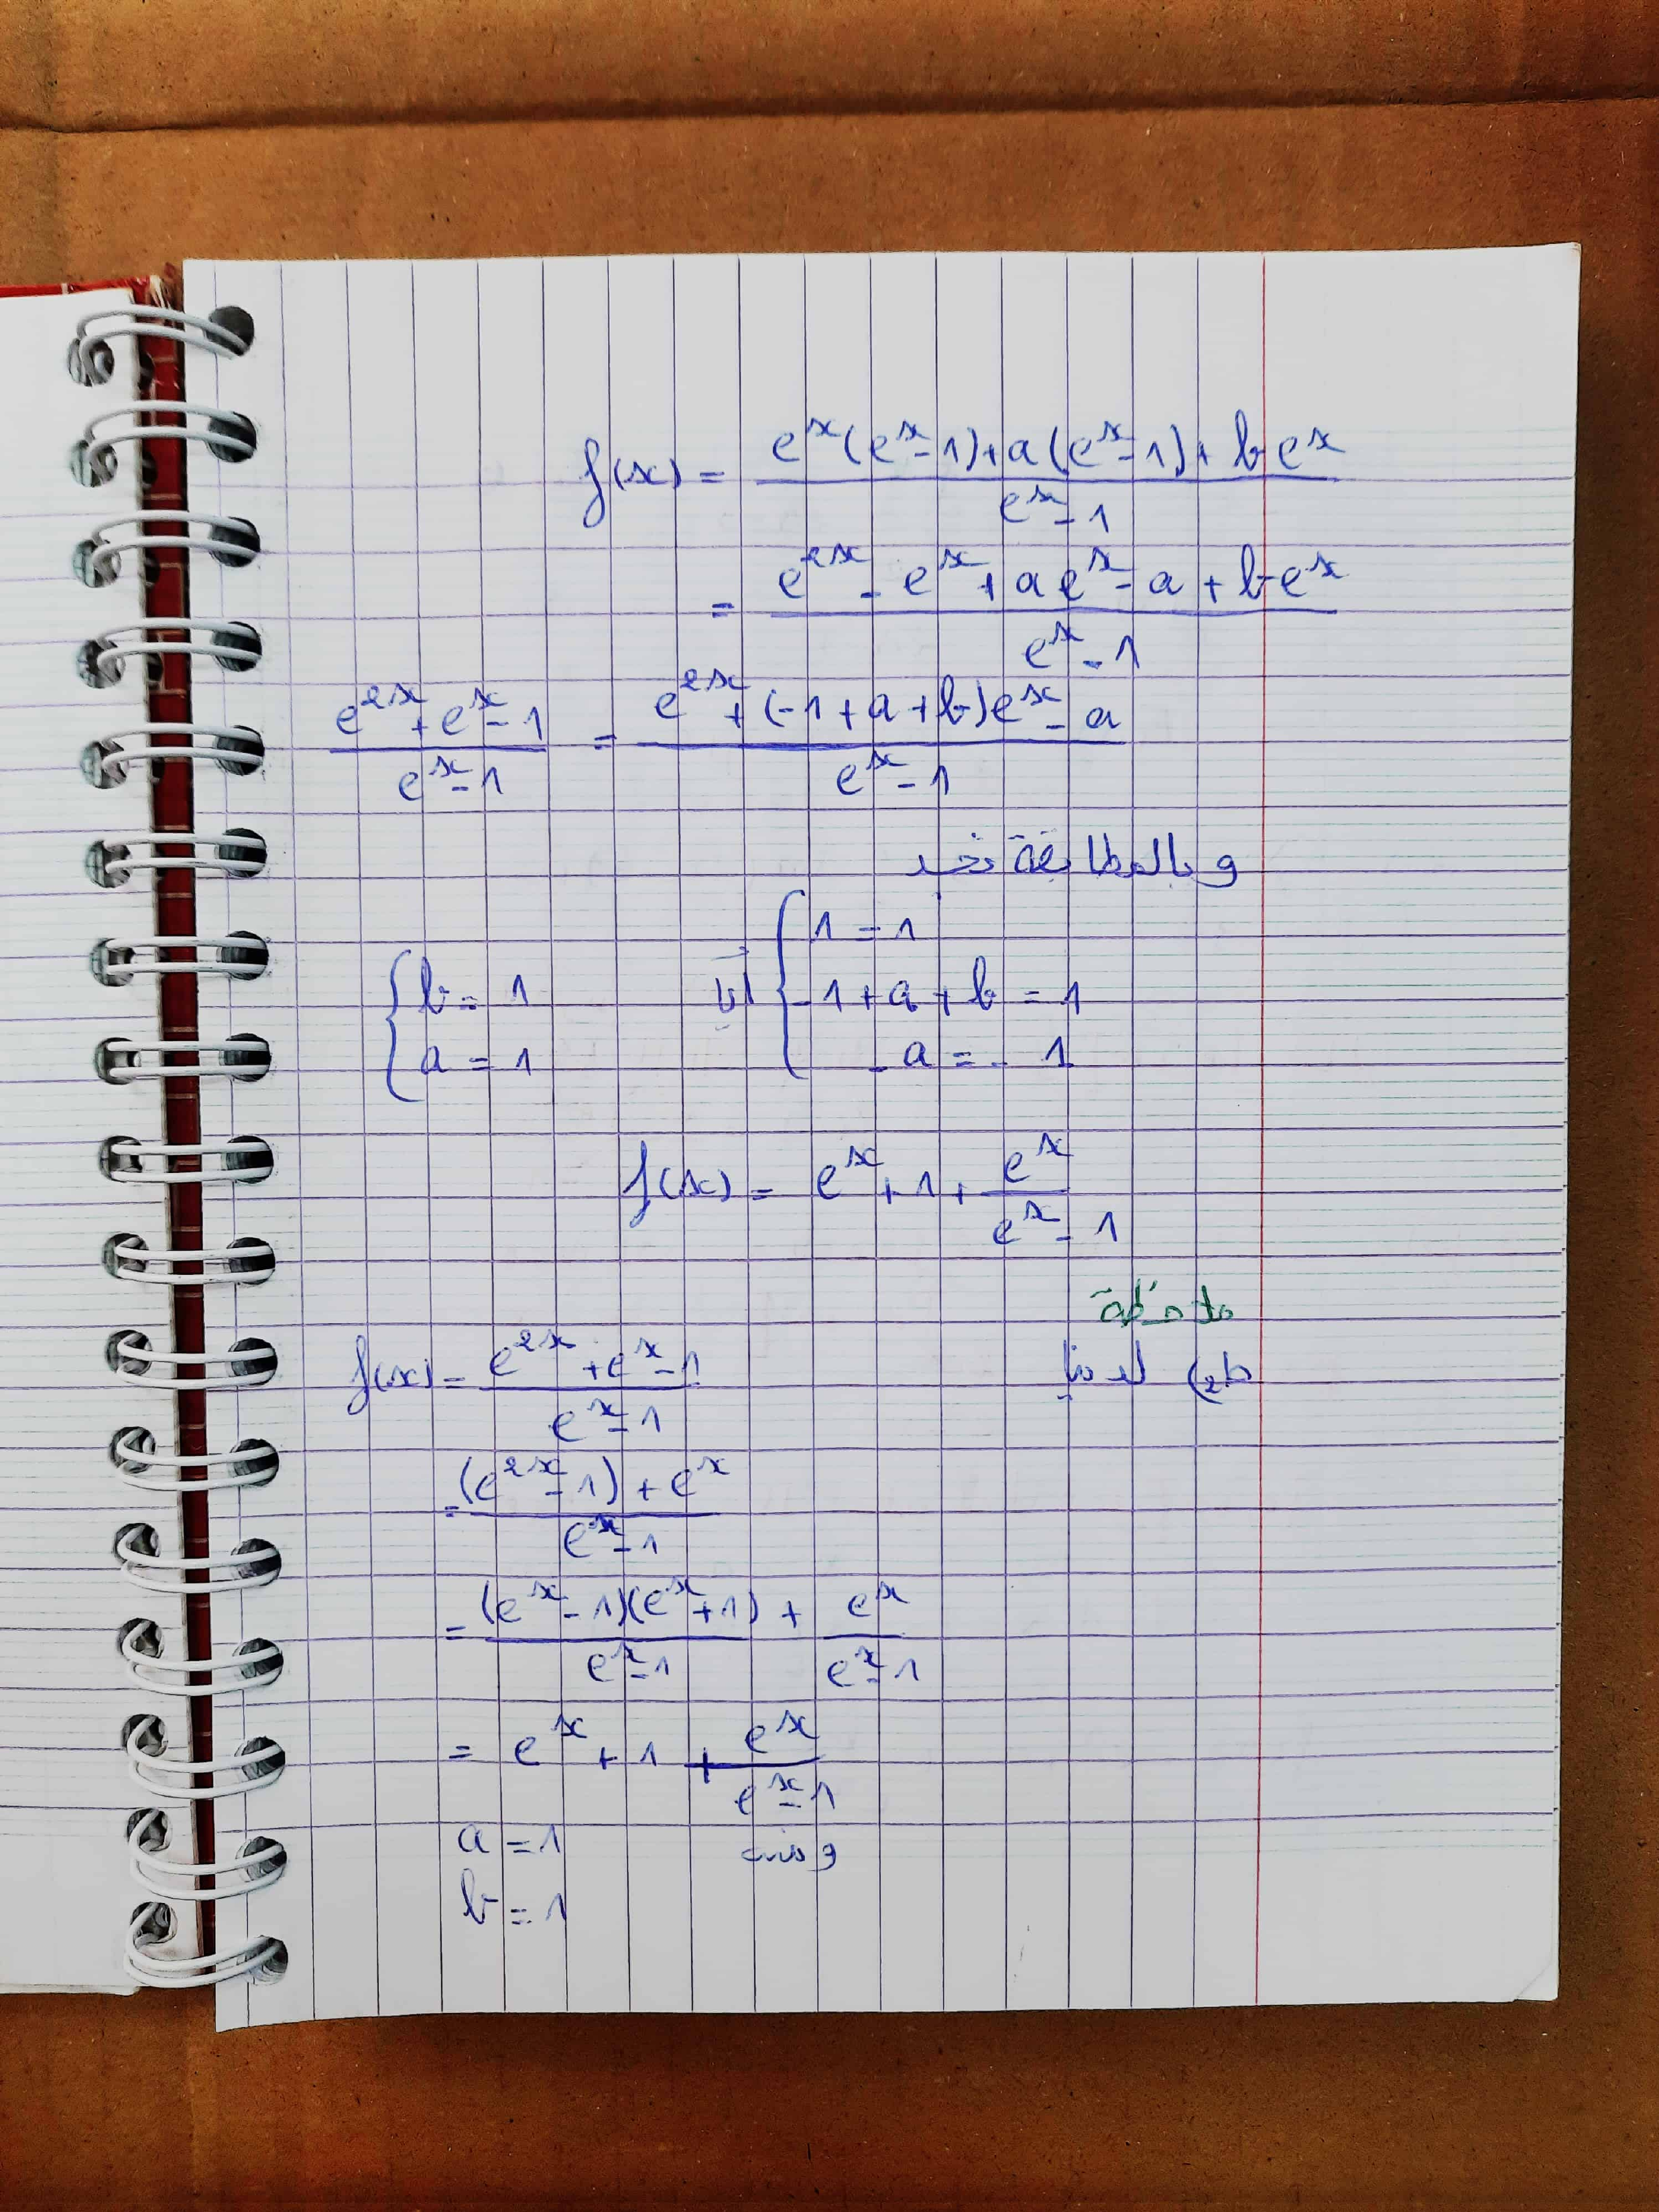 f(x) = (e^x(e^x-1)+a(e^x-1)+be^x)/(e^x-1)
= (e^2x - e^x + ae^x - a + be^x)/(e^x-1)
(e^2x+e^x-1)/(e^x-1) = (e^2x+(-1+a+b)e^x-a)/(e^x-1)
و بالمطابقة نجد
{ 1 = 1
-1+a+b = 1
-a = -1
أي
{ b = 1
a = 1
f(x) = e^x+1+e^x/(e^x-1)
ملاحظة
ط2) لدينا
f(x) = (e^2x+e^x-1)/(e^x-1)
= ((e^2x-1)+e^x)/(e^x-1)
= (e^x-1)(e^x+1)/(e^x-1) + e^x/(e^x-1)
= e^x+1+e^x/(e^x-1)
ومنه a = 1
b = 1